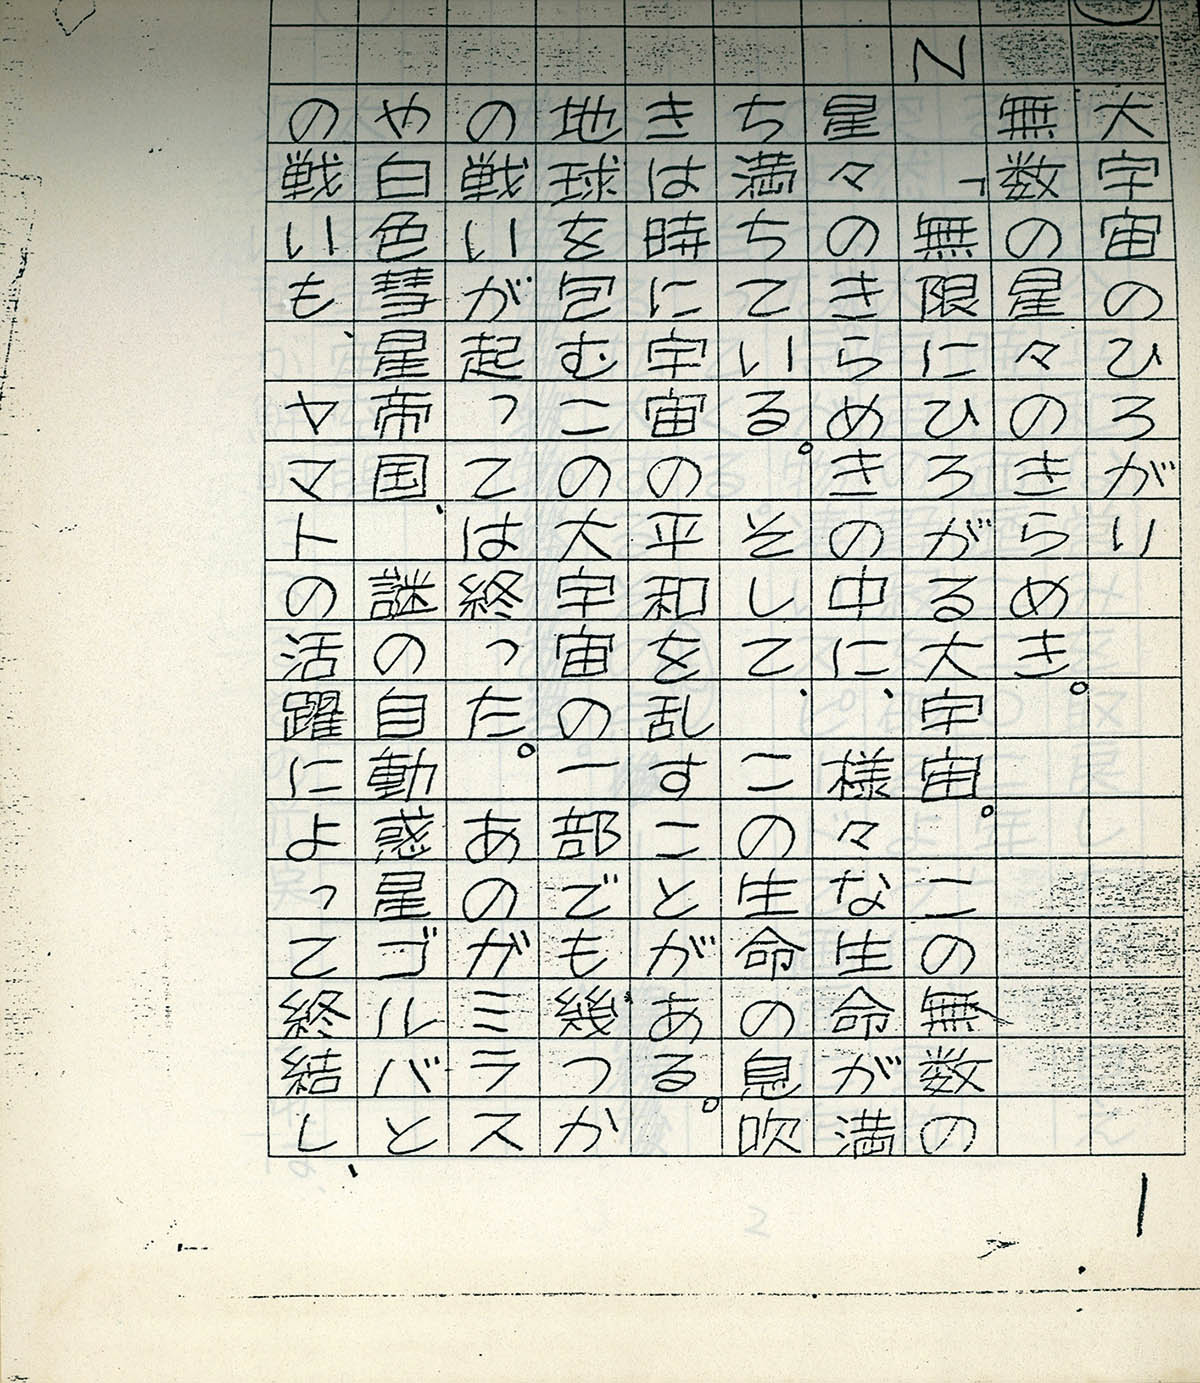 大宇宙のひろがり
無数の星々のきらめき。
N 「無限にひろがる大宇宙。この無数の
星々のきらめきの中に、様々な生命が満
ち満ちている。そして、この生命の息吹
きは時に宇宙の平和を乱すことがある。
地球を包むこの大宇宙の一部でも、幾つか
の戦いが起っては終った。あのガミラス
や白色彗星帝国、謎の自動惑星ゴルバと
の戦いも、ヤマトの活躍によって終結し、
1